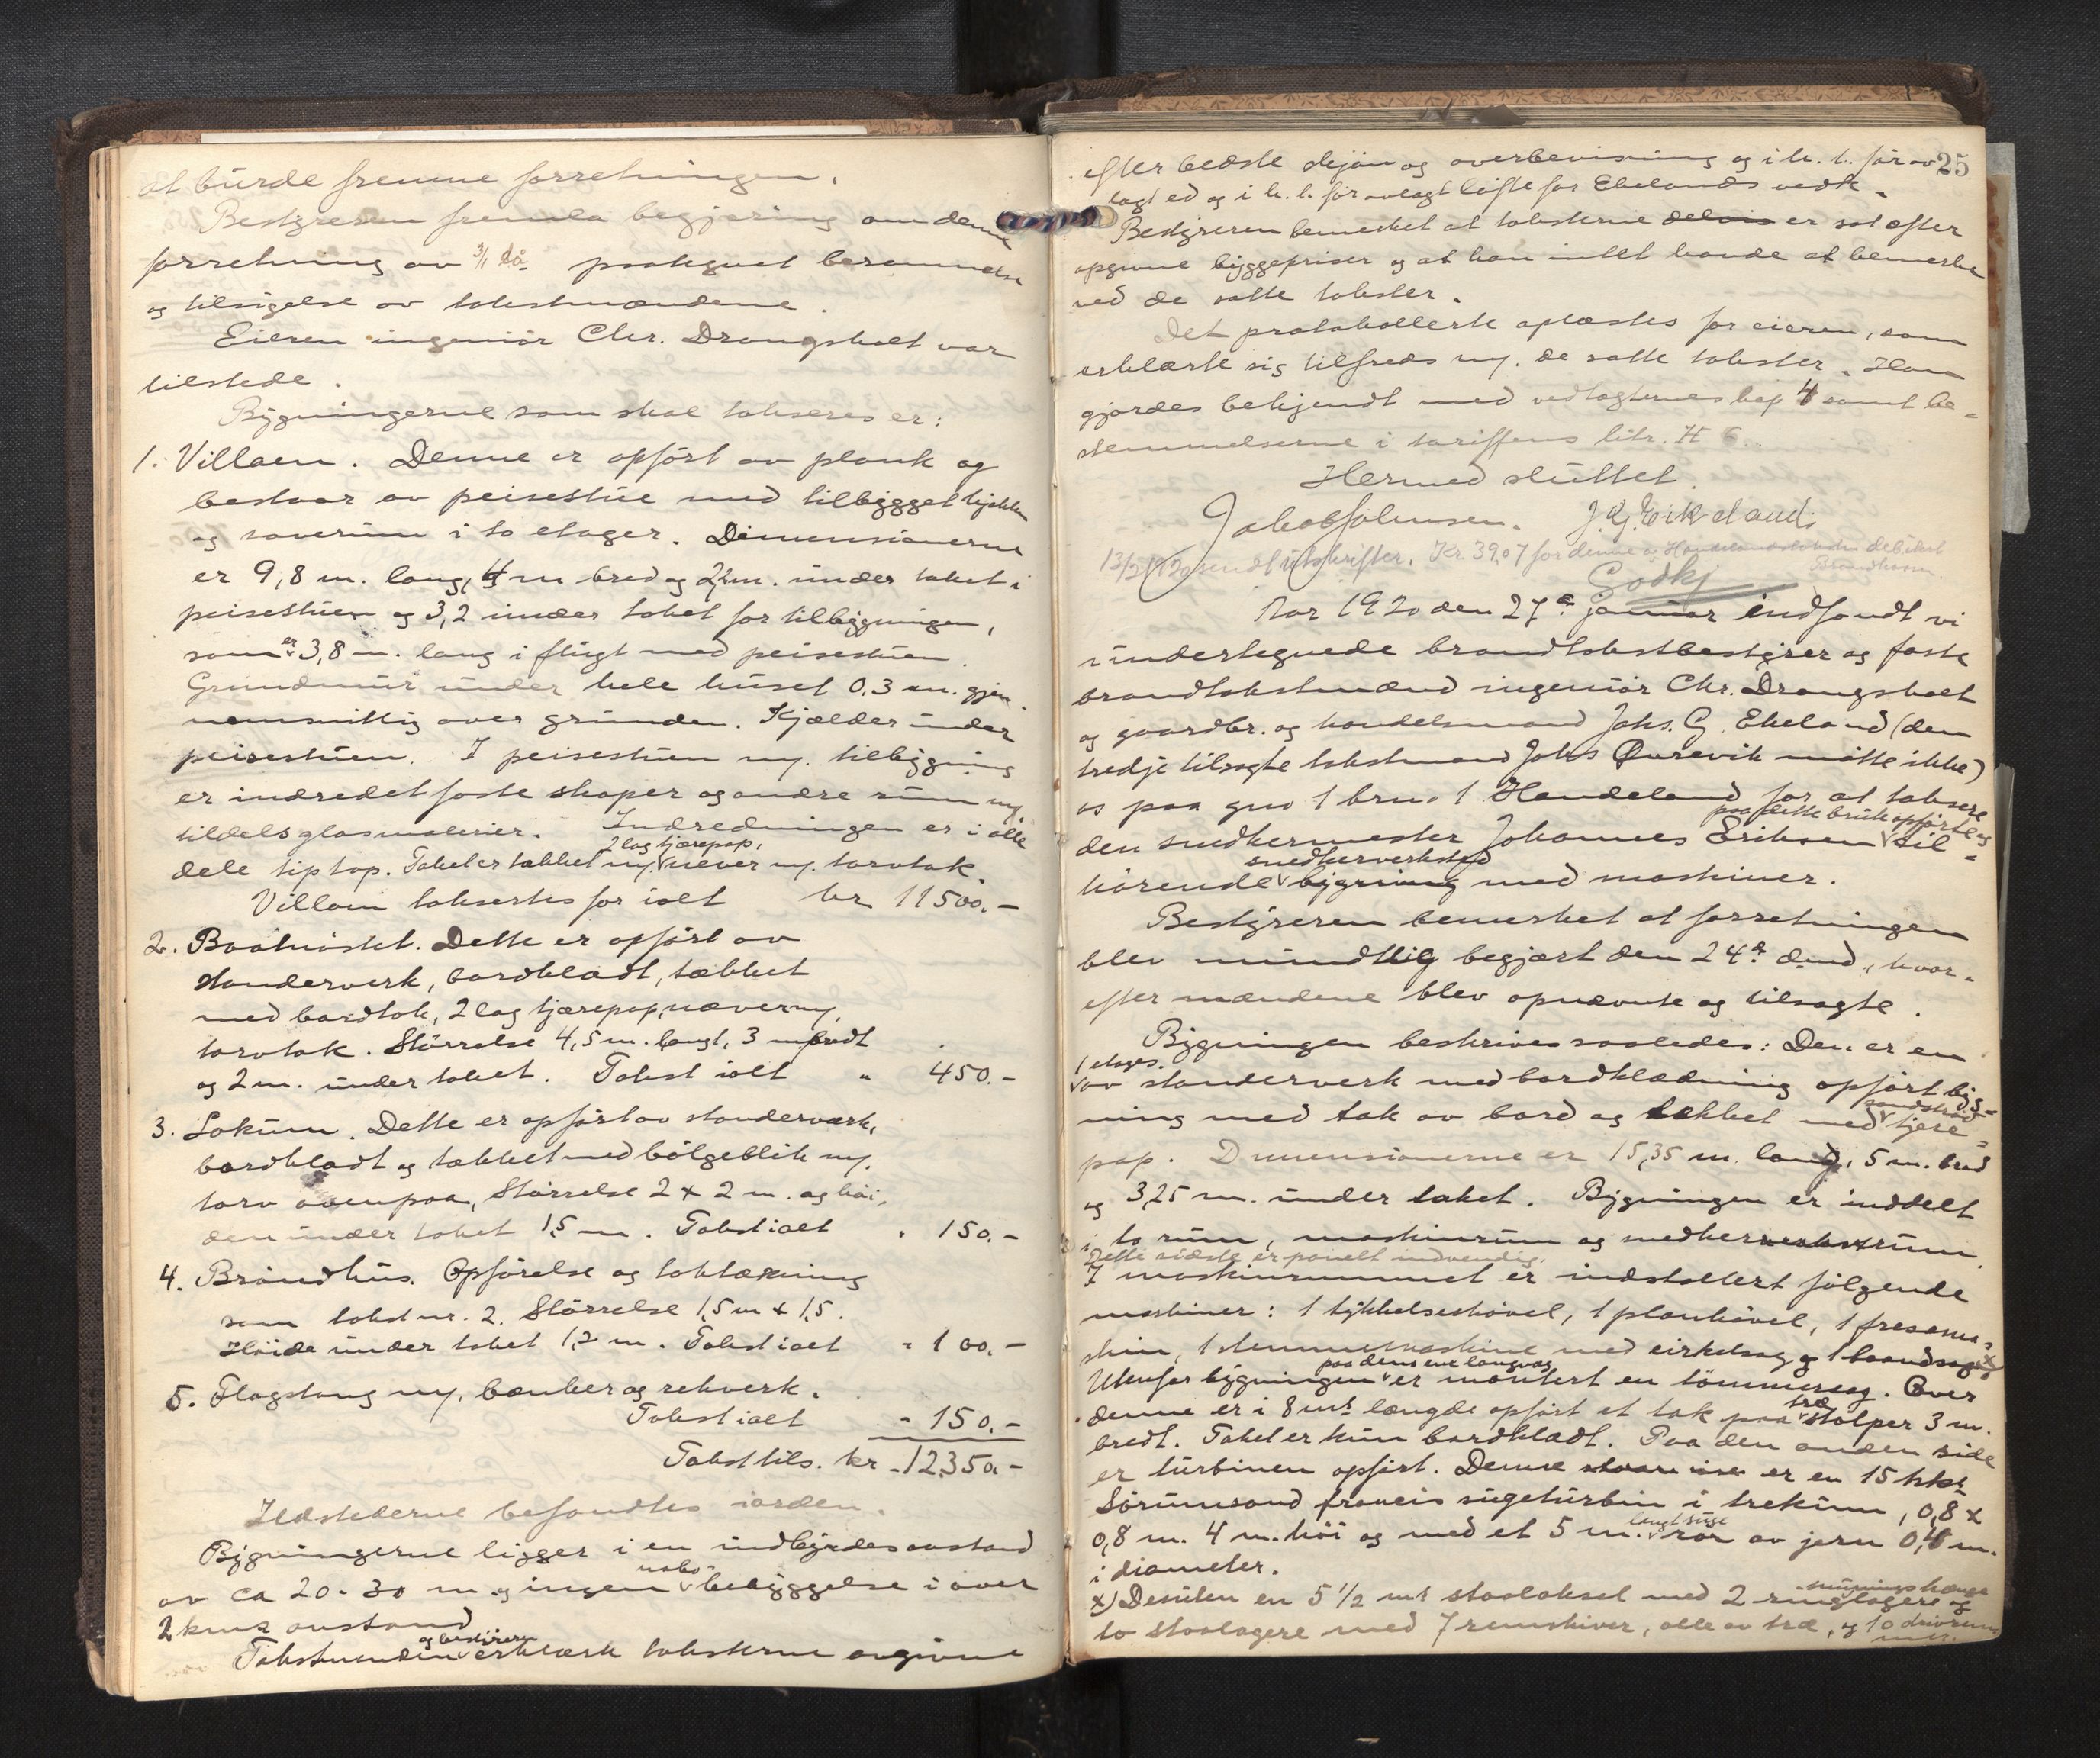 at burde fremme forretningen.
Bestyreren fremla begjæring om denne
forretning av 3/1 då. paategnet berammelse
og tilsigelse av takstmændene.
Eieren ingeniør Chr. Drangsholt var
tilstede.
Bygningerne som skal takseres er:
1. Villaen. Denne er opført av plank og
bestaar av peisestue med tilbygget kjøkken
og soverum i to etager. Dimensionerne
er 9,8 m. lang, 4 m bred og 2,2 m. under taket i
peisestuen og 3,2 under taket for tilbygningen,
som er 3,8 m. lang i flugt med peisestuen.
Grundmur under hele huset 0.3 m. gjen-
nemsnittlig over grunden. Kjælder under
peisestuen. I peisestuen m/. tilbygning
er indredet faste skaper og andre rum m/.
tildels glasmalerier. Indredningen er i alle
2 lag tjærepap,
dele tip top. Taket er tækket m/. næver m/. torvtak.
Villaen taksertes for ialt kr 11500.-
2. Baatnøstet. Dette er opført av
stenderverk, bordklædt, tækket
med bordtak, 2 lag tjærepap, næver m/.
torvtak. Størrelse 4,5 m. langt, 3 m bredt
og 2 m. under taket. Takst ialt " 450.-
3. Lokum. Dette er opført av stenderværk,
bordklædt og tækket med bølgeblik m/.
torv ovenpaa, Størrelse 2 x 2 m. og høi-
den under taket 1,5 m. Takst ialt " 150.-
4. Brøndhus. Opførelse og taktækning
som takst nr. 2. Størrelse 1,5 m x 1,5.
Høide under taket 1,2 m. Takst ialt " 100.-
5. Flagstang m/. bænker og rekverk.
Takst ialt " 150.-
Takst tils. kr 12350.-
Ildstederne befandtes iorden.
Bygningerne ligger i en indbyrdes avstand
nabo-
av ca 20-30 m. og ingen bebyggelse i over
2 kms avstand
og bestyreren
Takstmændene erklærte taksterne avgivne
25
efter bedste skjøn og overbevisning og i h. t. før av-
lagt ed og i h. t. før avlagt løfte for Ekelands vedk.
Bestyreren bemerket at taksterne delvis er sat efter
opgivne byggepriser og at han intet havde at bemerke
ved de satte takster.
Det protokollerte oplæstes for eieren, som
erklærte sig tilfreds m/. de satte takster. Han
gjordes bekjendt med vedtægternes kap 4 samt be-
stemmelserne i tariffens litr. H 6.
Hermed sluttet.
Jakob Johnsen. J. G. Eikeland.
13/2 1920 sendt utskrifter. Kr. 39,07 for denne og debitert
Brandkassen.
Godkj
Aar 1920 den 27de januar indfandt vi
undertegnede brandtakstbestyrer og faste
brandtakstmænd ingeniør Chr. Drangsholt
og gaardbr. og handelsmand Johs. G. Ekeland (den
tredje tilsagte takstmand Johs Øvrevik møtte ikke)
os paa gno 1 brno 1 Handeland for at taksere
paa dette bruk opførte og
den snedkermester Johannes Eriksen til-
snedkerverksted
hørende bygning med maskiner.
Bestyreren bemerket at forretningen
blev mundtlig begjært den 24de ds md., hvor-
efter mændene blev opnævnte og tilsagte.
Bygningen beskrives saaledes: Den er en
1 etages.
av stenderverk med bordklædning opført byg-
sandstrød
ning med tak av bord og tækket med tjære-
pap. Dimensionerne er 15,35 m. lang, 5 m. bred
og 3,25 m. under taket. Bygningen er inddelt
i to rum, maskinrum og snedkerverkstrum.
Dette sidste er panelt indvendig.
I maskinrummet er indstallert følgende
maskiner: 1 tykkelseshøvel, 1 planhøvel, 1 fresema-
skin, 1 stemmemaskine med cirkelsag og 1 baandsag x)
paa dens ene langvæg
Utenfor bygningen er montert en tømmersag. Over
træ
denne er i 8 mrs længde opført et tak paa stolper 3 m.
bredt. Taket er kun bordklædt. Paa den anden side
er turbinen opført. Denne er en 15 hks
Sørumsand francis sugeturbin i trekum, 0,8 x
langt suge
0,8 m. 4 m. høi og med et 5 m. rør av jern 0,4 m.
i diameter.
x) Desuten en 5 1/2 mr staalaksel med 2 ringlagere og
to staalagere med 7 remskiver, alle av træ, og 10 drivrem-
mer.